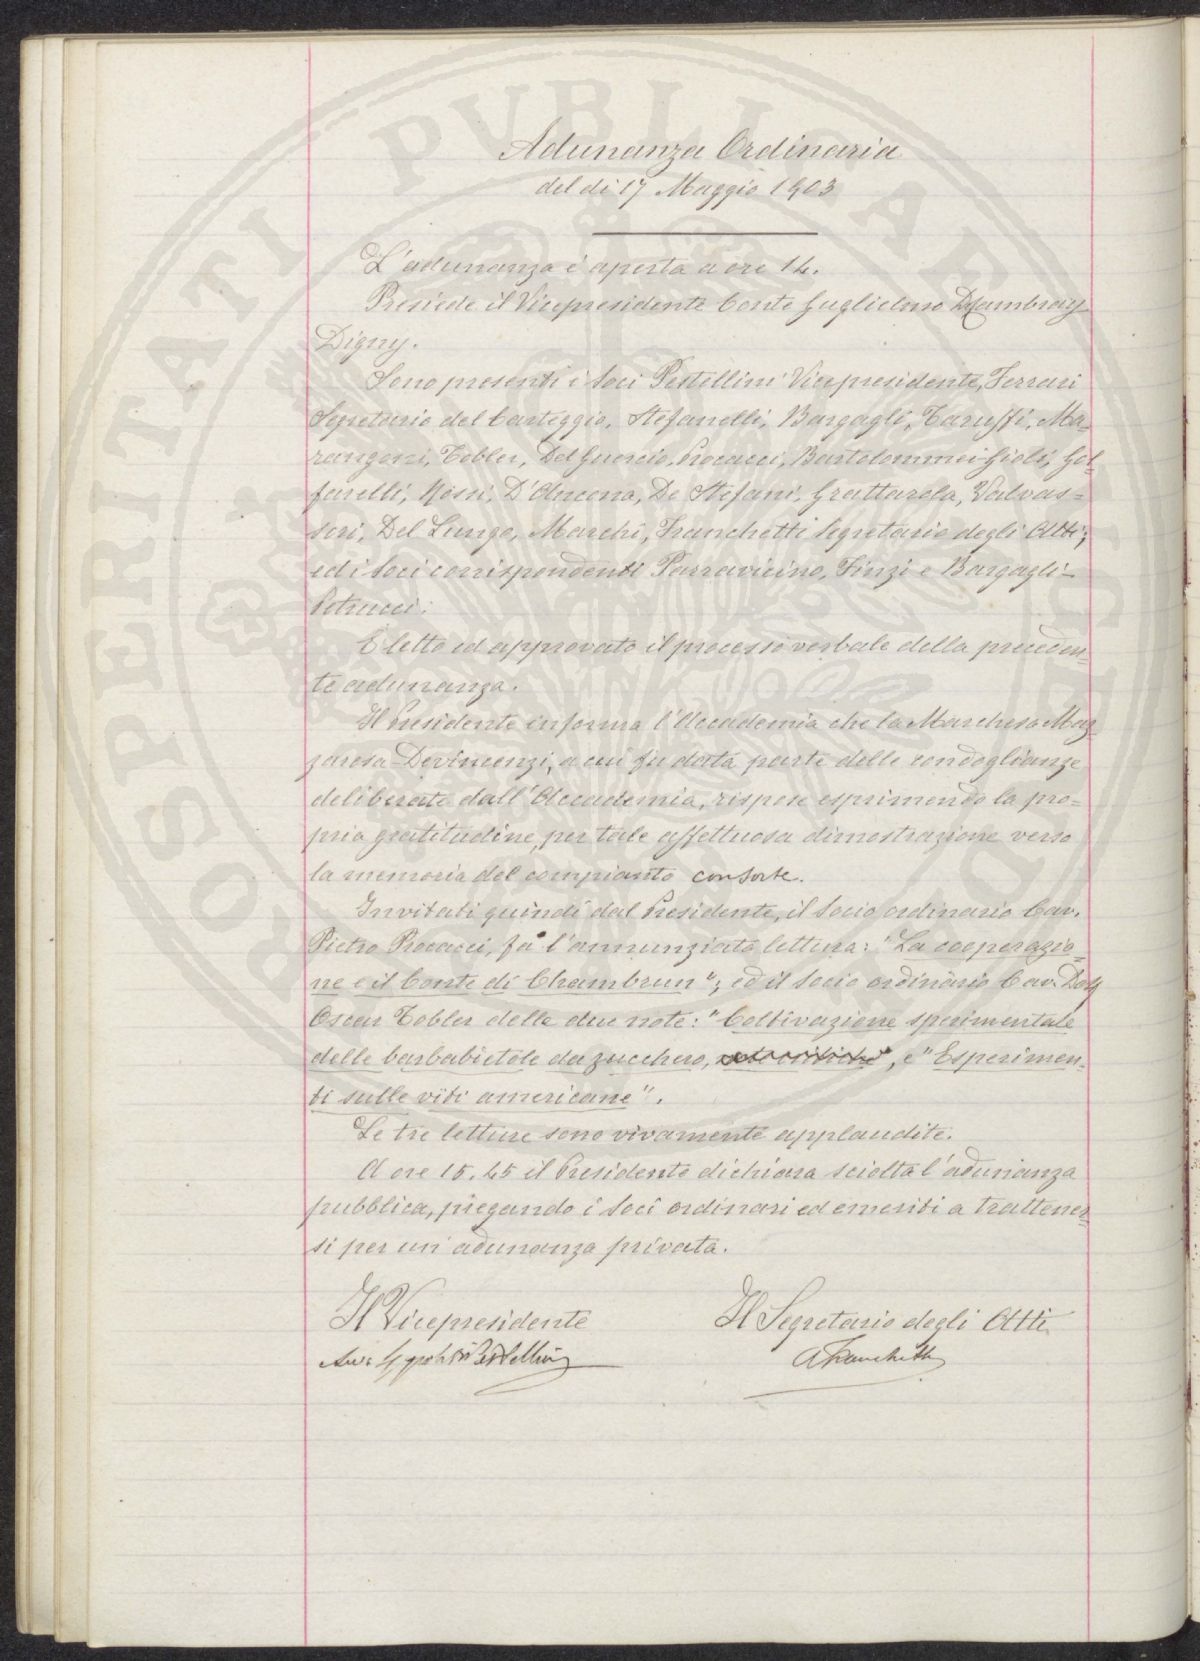 Adunanza Ordinaria
del dì 17 Maggio 1903
L'adunanza è aperta a ore 14.
Presiede il Vicepresidente Conte Guglielmo De Cambray
Digny.
Sono presenti i Soci Pestellini Vicepresidente, Ferrari
Segretario del Carteggio, Stefanelli, Bargagli, Taruffi, Ma-
rangoni, Tobler, Del Guercio, Procacci, Bartolommei Gioli, Gol-
farelli, Nissi, D'Ancona, De Stefani, Grattarola, Valvas-
sori, Del Lungo, Marchi, Franchetti Segretario degli Atti;
ed i Soci corrispondenti Parravicino, Finzi e Bargagli-
Petrucci.
È letto ed approvato il processo verbale della preceden-
te adunanza.
Il Presidente informa l'Accademia che la Marchesa Maz-
zarosa Devincenzi, a cui fu data parte delle condoglianze
deliberate dall'Accademia, rispose esprimendo la pro-
pria gratitudine per tale affettuosa dimostrazione verso
la memoria del compianto consorte.
Invitati quindi dal Presidente, il Socio ordinario Cav.
Pietro Procacci, fa l'annunziata lettura: "La cooperazio-
ne e il Conte di Chambrun"; ed il Socio ordinario Cav. Dott
Oscar Tobler delle due note: "Coltivazione sperimentale
delle barbabietole da zucchero, e "Esperimen-
ti sulle viti americane".
Le tre letture sono vivamente applaudite.
A ore 15.45 il Presidente dichiara sciolta l'adunanza
pubblica, pregando i Soci ordinari ed emeriti a trattener-
si per un'adunanza privata.
Il Vicepresidente
Il Segretario degli Atti
Avv. Ippolito Pestellini
A Franchetti
PROSPERITATI PVBLICAE